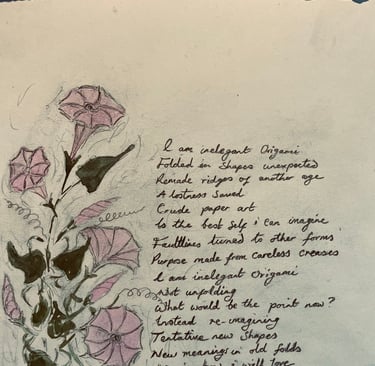 I am inelegant Origami
Folded in shapes unexpected
Remade ridges of another age
A lostness saved
Crude paper art
Is the best self i can imagine
Faultlines turned to other forms
Purpose made from careless creases
I am inelegant origami
Not unfolding
What would be the point now?
Instead re-imagining
Tentative new shapes
New meanings in old folds
i will love